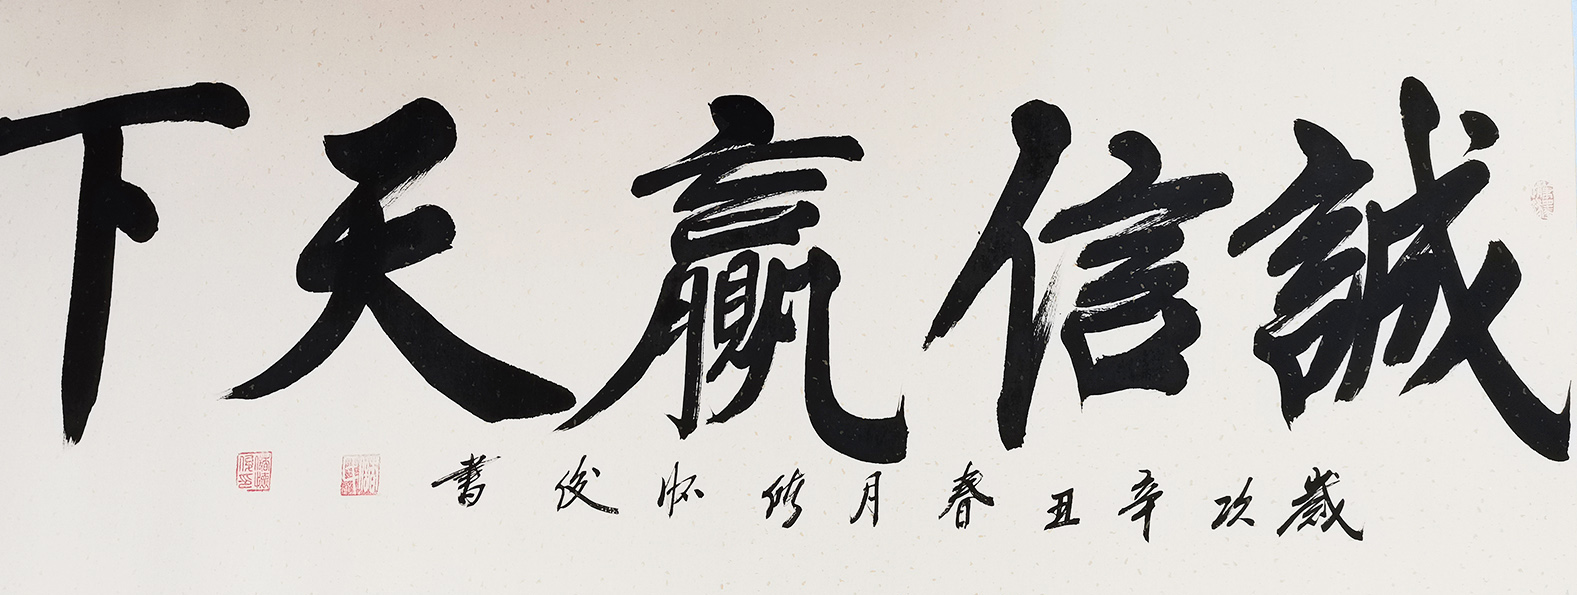 誠信贏天下
歲次辛丑春月傅懷俊書